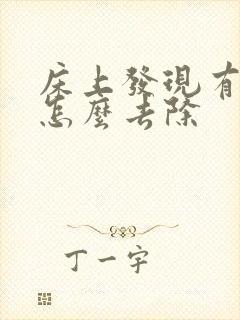 床上發現有
怎麼去除
丁一宇